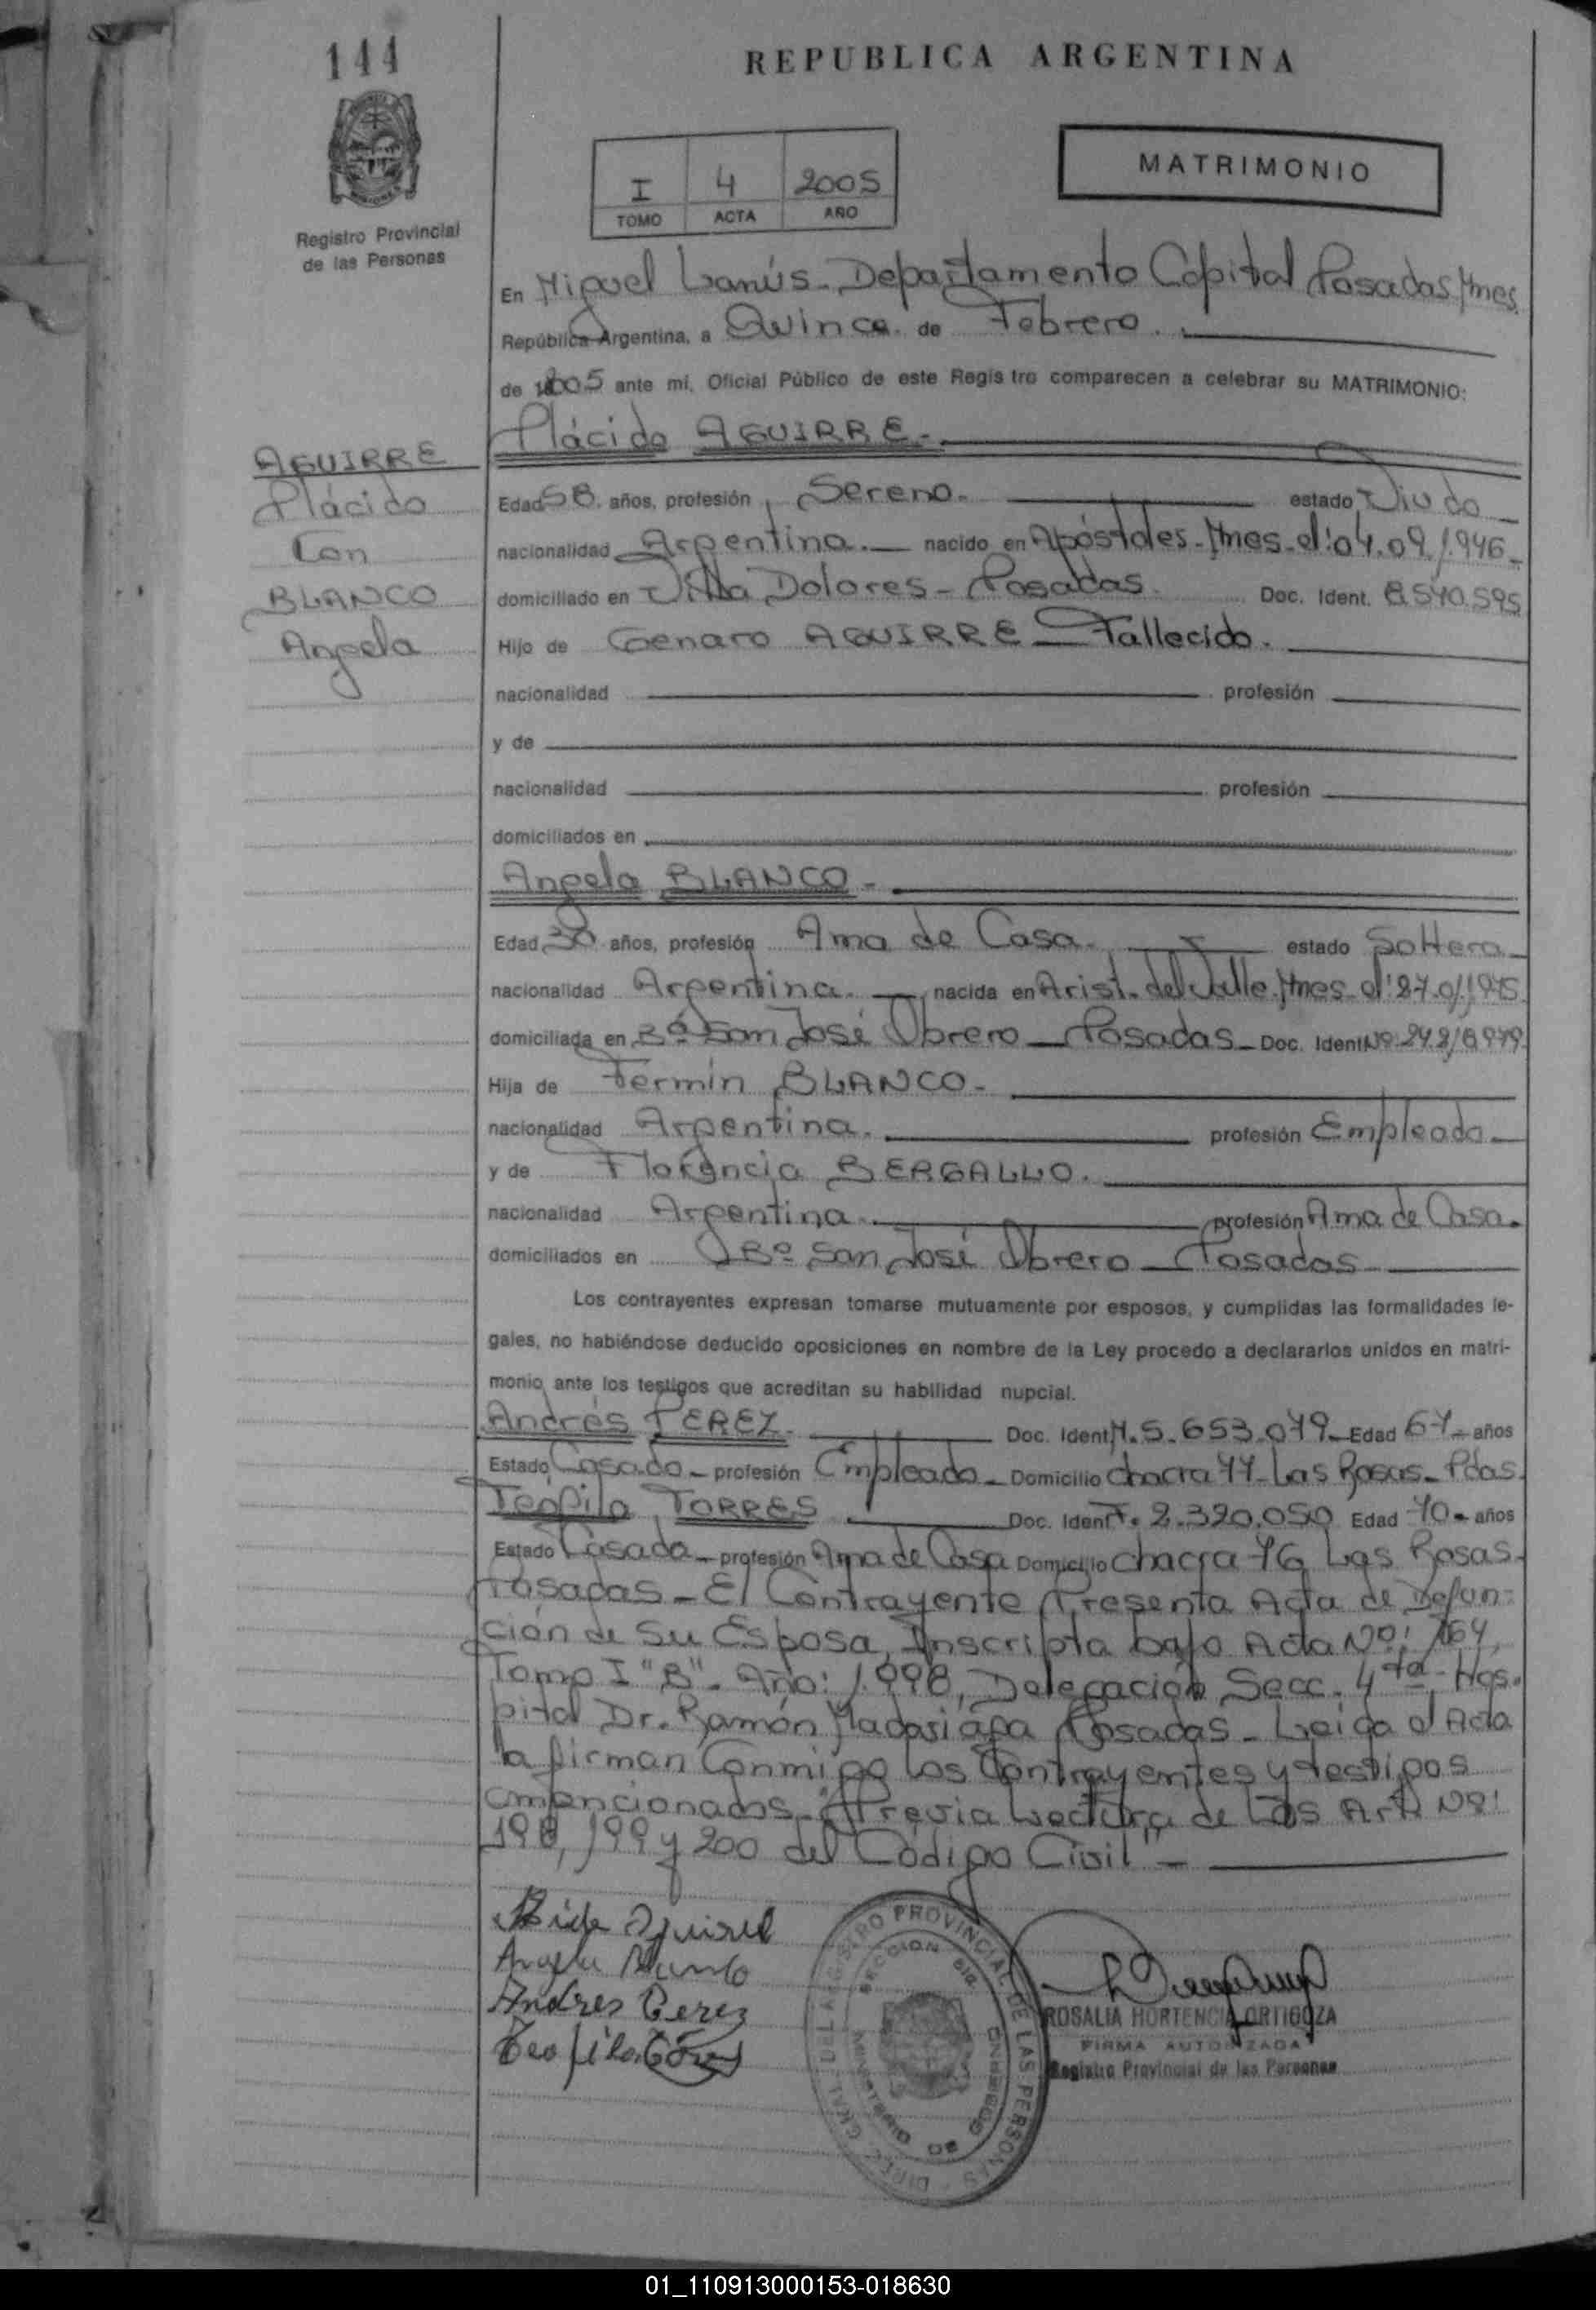 144
REPUBLICA ARGENTINA
Registro Provincial
de las Personas
I 4 2005
TOMO ACTA AÑO
MATRIMONIO
En Miguel Lanús - Departamento Capital Posadas Mnes.
República Argentina, a Quince de Febrero.
de 2005 ante mí, Oficial Público de este Registro comparecen a celebrar su MATRIMONIO:
AGUIRRE
Plácido
Con
BLANCO
Angela
Plácido AGUIRRE.-
Edad 58 años, profesión Sereno. estado Viudo
nacionalidad Argentina. nacido en Apóstoles - Mnes - el: 04.09.1.946
domiciliado en Villa Dolores - Posadas Doc. Ident. 8.540.595
Hijo de Genaro AGUIRRE - Fallecido.
nacionalidad profesión
y de
nacionalidad profesión
domiciliados en
Angela BLANCO -
Edad 30 años, profesión Ama de Casa. estado Soltera
nacionalidad Argentina. nacida en Arist. del Valle. Mnes - el:
domiciliada en Bº San José Obrero - Posadas - Doc. Ident Nº
Hija de Fermín BLANCO -
nacionalidad Argentina. profesión Empleado
y de Florencia BERGALLO.
nacionalidad Argentina profesión Ama de Casa.
domiciliados en Bº San José Obrero - Posadas
Los contrayentes expresan tomarse mutuamente por esposos, y cumplidas las formalidades le-
gales, no habiéndose deducido oposiciones en nombre de la Ley procedo a declararlos unidos en matri-
monio ante los testigos que acreditan su habilidad nupcial.
Andrés PEREZ. Doc. Ident M. 5.653.079 - Edad 67 - años
Estado Casado - profesión Empleado - Domicilio chacra 77 - Las Rosas - Pdas.
Teófila TORRES Doc. Ident F. 2.320.050 Edad 70 - años
Estado Casada - profesión Ama de Casa Domicilio chacra 76 Las Rosas -
Posadas - El Contrayente Presenta Acta de Defun-
ción de Su Esposa, Inscripta bajo Acta Nº:
Tomo I "B" - Año: 1.998, Delegación Secc. 4ta - Hos-
pital Dr. Ramón Madariaga Posadas - Leída el Acta
la firman Conmigo los Contrayentes y testigos
mencionados - "Previa Lectura de Los Art. Nº:
198, 199 y 200 del Código Civil" -
Aguirre
Angela Blanco
Andres Perez
Teofila
DIREC. GRAL. DEL REGISTRO PROVINCIAL DE LAS PERSONAS
MINISTERIO DE GOBIERNO
ROSALIA HORTENCIA ORTIGOZA
FIRMA AUTORIZADA
Registro Provincial de las Personas
01_110913000153-018630